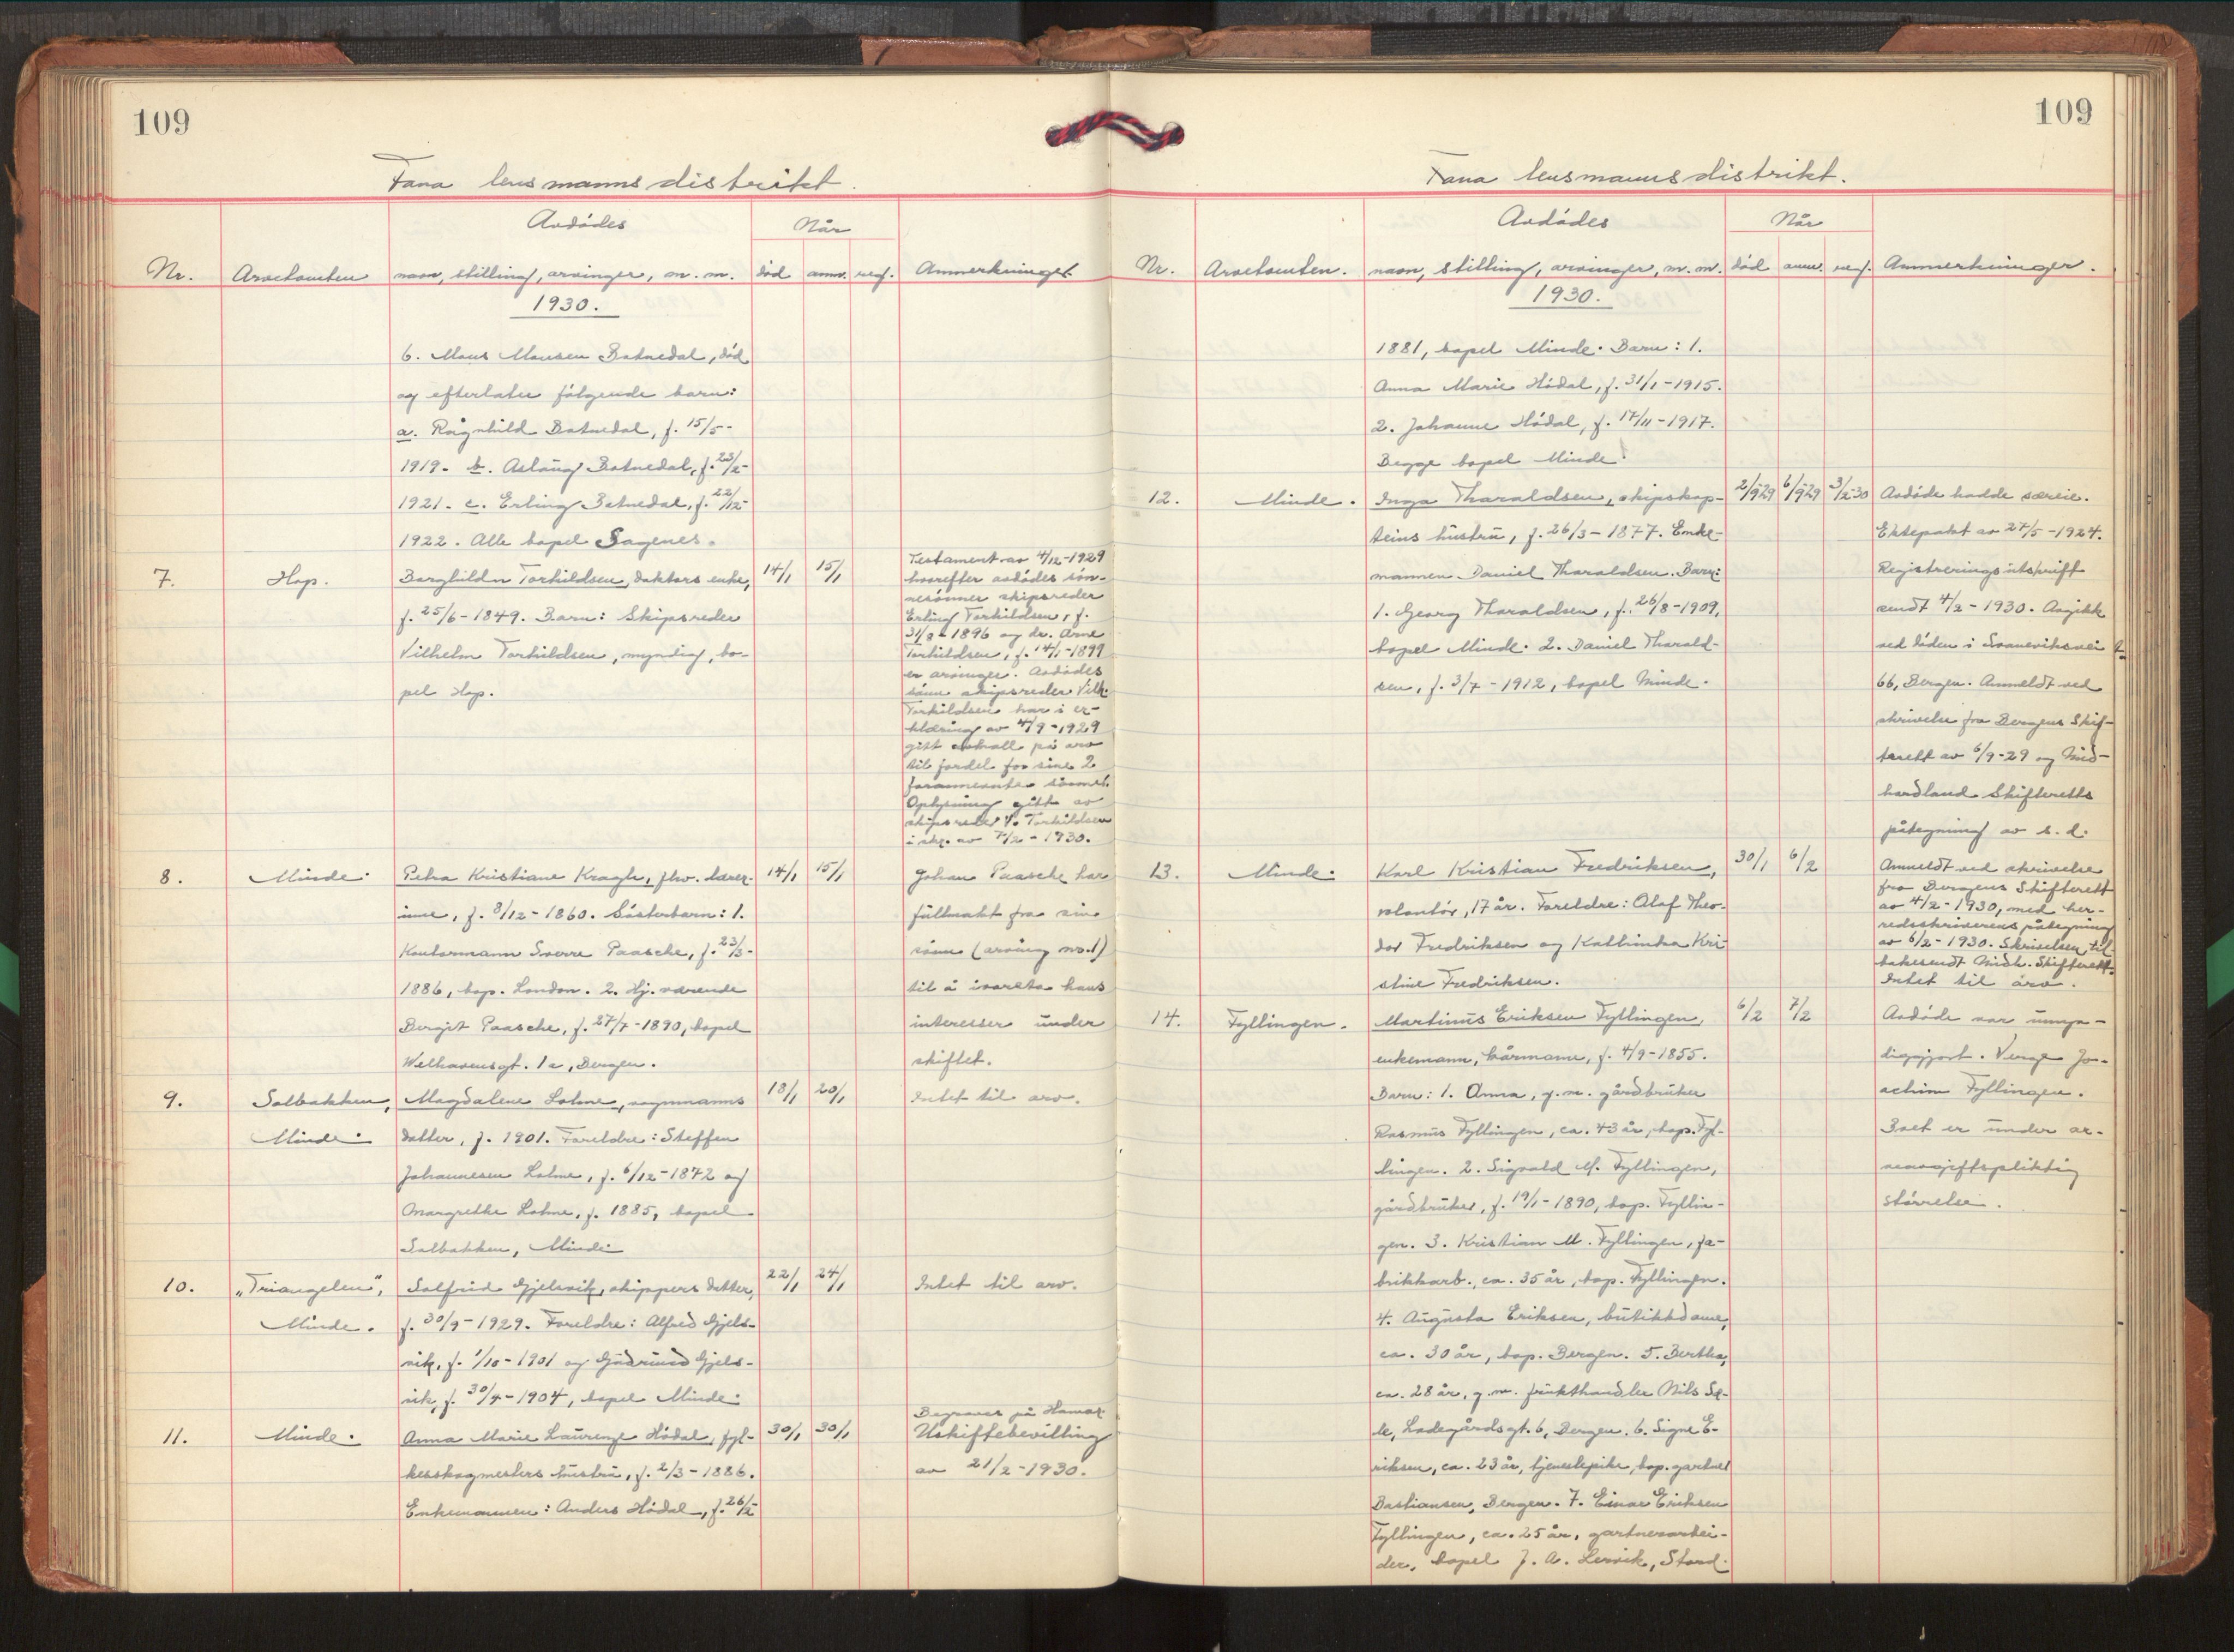 109
Fana lensmannsdistrikt.
Avdødes
Når
Nr.
Arvetomten
navn, stilling, arvinger, m. m.
død
anm.
reg.
Anmerkninger
1930.
6. Mons Monsen Botnedal, død
og efterlater følgende barn:
a. Ragnhild Botnedal, f. 15/5-
1919. b. Aslaug Botnedal, f. 23/2-
1921. c. Erling Botnedal, f. 22/12-
1922. Alle bopel Sagenes.
7.
Hop.
Borghild Torkildsen, doktors enke,
14/1
15/1
f. 25/6-1849. Barn: Skipsreder
Vilhelm Torkildsen, myndig, bo-
pel Hop.
Testament av 4/12-1929
hvorefter avdødes søn-
nesønner skipsreder
Erling Torkildsen, f.
31/8-1896 og dr. Arne
Torkildsen, f. 14/1-1899
er arvinger. Avdødes
sønn skipsreder Vilh.
Torkildsen har i er-
klæring av 4/9-1929
gitt avkall på arv
til fordel for sine 2
forannevnte sønner.
Oplysning gitt av
skipsreder V. Torkildsen
i skr. av 7/2-1930.
8.
Minde.
Petra Kristiane Kragh, fhv. lærer-
14/1
15/1
inne, f. 8/12-1860. Søsterbarn: 1.
Kontormann Sverre Paasche, f. 23/3-
1886, bop. London. 2. Hj. værende
Bergit Paasche, f. 27/7-1890, bopel
Welhavensgt. 1a, Bergen.
Johan Paasche har
fullmakt fra sin
sønn (arving no. 1)
til å ivareta hans
interesser under
skiftet.
9.
Solbakken,
Minde.
Magdalene Lohne, vognmanns
18/1
20/1
Intet til arv.
datter, f. 1901. Foreldre: Steffen
Johannesen Lohne, f. 6/12-1872 og
Margrethe Lohne, f. 1885, bopel
Solbakken, Minde.
10.
"Triangelen",
Minde.
Solfrid Gjelsvik, skippers datter,
22/1
24/1
Intet til arv.
f. 30/9-1929. Foreldre: Alfred Gjels-
vik, f. 1/10-1901 og Gudrund Gjels-
vik, f. 30/4-1904, bopel Minde.
11.
Minde.
Anna Marie Laurenze Hødal, fyl-
30/1
30/1
kesskogmesters hustru, f. 2/3-1886.
Enkemannen: Anders Hødal, f. 26/2
Begraves på Hamar.
Uskiftebevilling
av 21/2-1930.
109
Fana lensmannsdistrikt.
Avdødes
Når
Nr.
Arvetomten.
navn, stilling, arvinger, m. m.
død
anm.
reg.
Anmerkninger.
1930.
1881, bopel Minde. Barn: 1.
Anna Marie Hødal, f. 31/1-1915.
2. Johanne Hødal, f. 17/11-1917.
Begge bopel Minde.
12.
Minde.
Inga Tharaldsen, skipskap-
2/9-29
6/9-29
3/2-30
teins hustru, f. 26/3-1877. Enke-
mannen Daniel Tharaldsen. Barn:
1. Georg Tharaldsen, f. 26/8-1909,
bopel Minde. 2. Daniel Tharald-
sen, f. 3/7-1912, bopel Minde.
Avdøde hadde særeie.
Ektepakt av 27/5-1924.
Registreringsutskrift
sendt 4/2-1930. Avgikk
ved døden i Svaneviksvei
66, Bergen. Anmeldt ved
skrivelse fra Bergens Skif-
terett av 6/9-29 og Mid-
hordland Skifteretts
påtegning av s. d.
13.
Minde.
Karl Kristian Fredriksen,
30/1
6/2
volontør, 17 år. Foreldre: Olaf Theo-
dor Fredriksen og Kathinka Kri-
stine Fredriksen.
Anmeldt ved skrivelse
fra Bergens Skifterett
av 4/2-1930, med her-
redsskriverens påtegning
av 6/2-1930. Skrivelsen til-
bakesendt Midh. Skifterett.
Intet til arv.
14.
Fyllingen.
Martinus Eriksen Fyllingen,
6/2
7/2
enkemann, kårmann, f. 4/9-1855.
Barn: 1. Anna, g. m. gårdbruker
Rasmus Fyllingen, ca. 43 år, bop. Fyl-
lingen. 2. Sigvald M. Fyllingen,
gårdbruker, f. 19/1-1890, bop. Fyllin-
gen. 3. Kristian M. Fyllingen, fa-
brikkarb., ca. 35 år, bop. Fyllingen.
4. Augusta Eriksen, butikkdame,
ca. 30 år, bop. Bergen. 5. Bertha,
ca. 28 år, g. m. frukthandler Nils Sæ-
le, Ladegårdsgt. 6, Bergen. 6. Signe E-
riksen, ca. 23 år, tjenestepike, bop. gartner
Bastiansen, Bergen. 7. Einar Eriksen
Fyllingen, ca. 25 år, gartnerarbei-
der, bopel J. A. Lervik, Stord.
Avdøde var umyn-
diggjort. Verge Jo-
achim Fyllingen.
Boet er under ar-
veavgiftspliktig
størrelse.